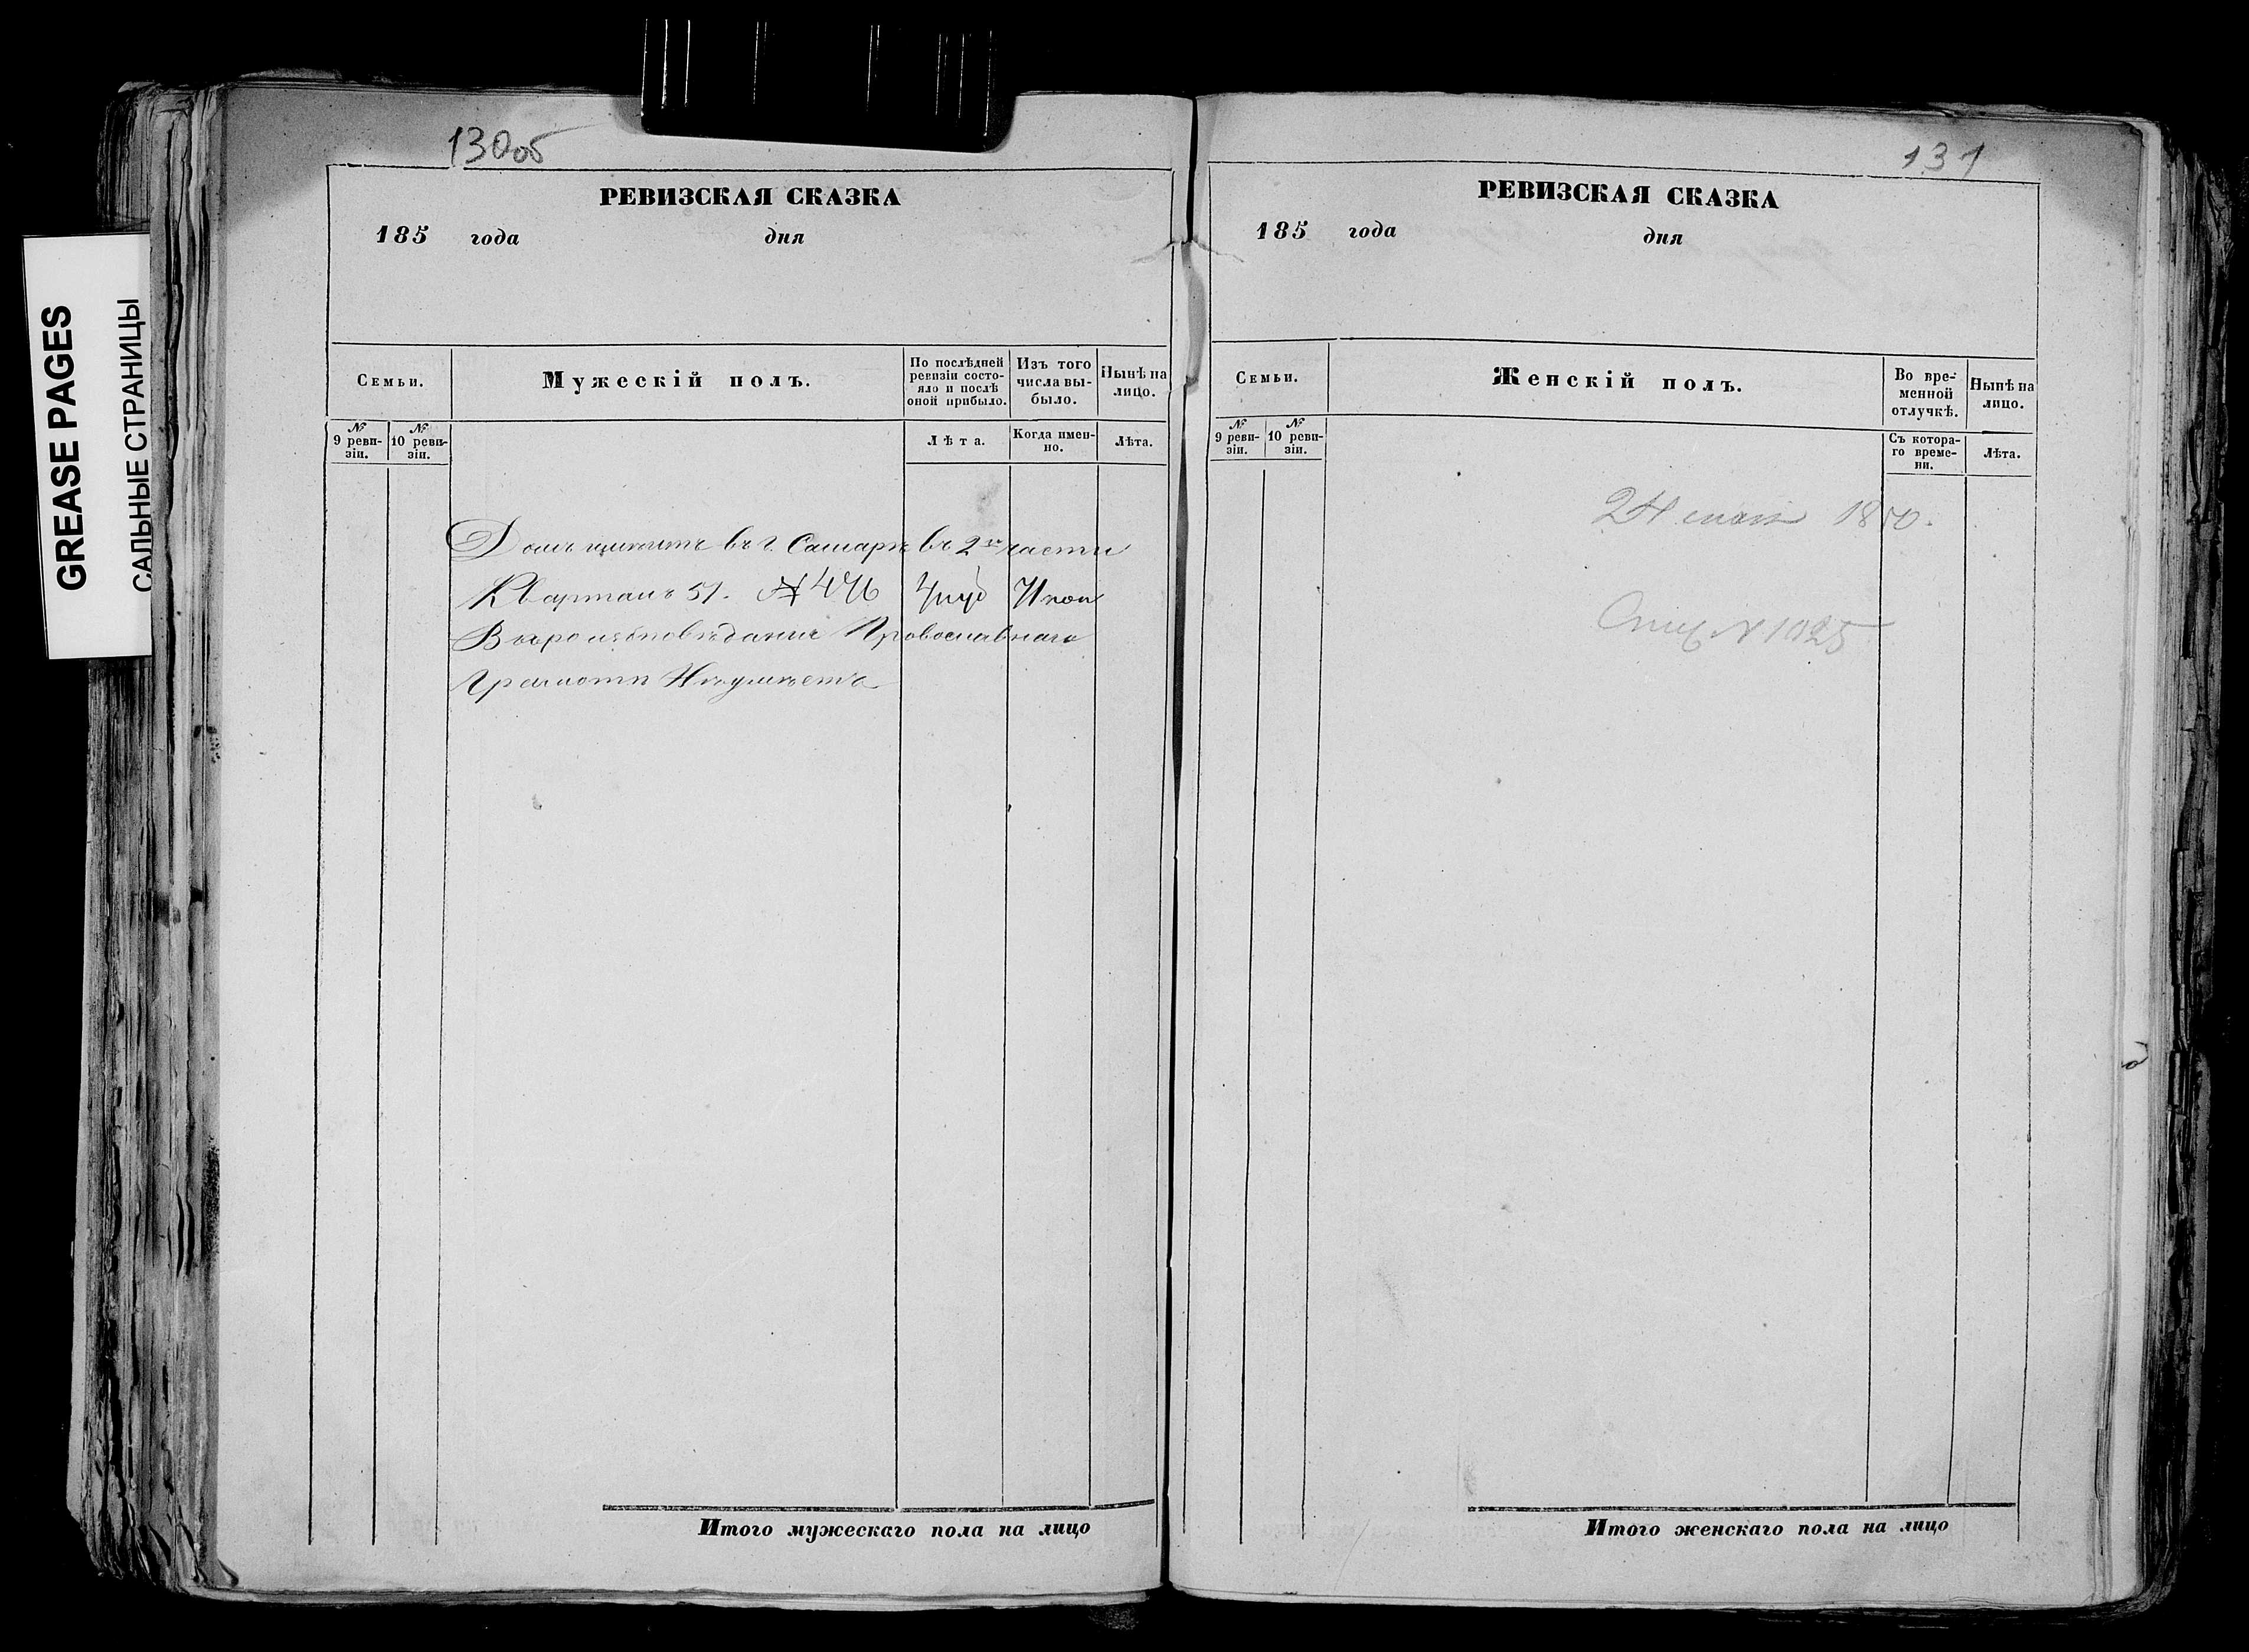 GREASE PAGES
САЛЬНЫЕ СТРАНИЦЫ
130об
РЕВИЗСКАЯ СКАЗКА
185 года дня
Семьи.
Мужескій полъ.
По послѣдней ревизіи состояло и послѣ оной прибыло.
Изъ того числа выбыло.
Нынѣ на лицо.
№ 9 ревизіи.
№ 10 ревизіи.
Лѣта.
Когда именно.
Лѣта.
Домъ имѣитъ въ г. Самарѣ въ 2й части
Кварталъ 51. № 476
Вѣроисповѣданіе Провославнаго
Грамоти Неумѣетъ
Итого мужескаго пола на лицо
131
РЕВИЗСКАЯ СКАЗКА
185 года дня
Семьи.
Женскій полъ.
Во временной отлучкѣ.
Нынѣ на лицо.
№ 9 ревизіи.
№ 10 ревизіи.
Съ котораго времени.
Лѣта.
24 мая
№ 1025
Итого женскаго пола на лицо